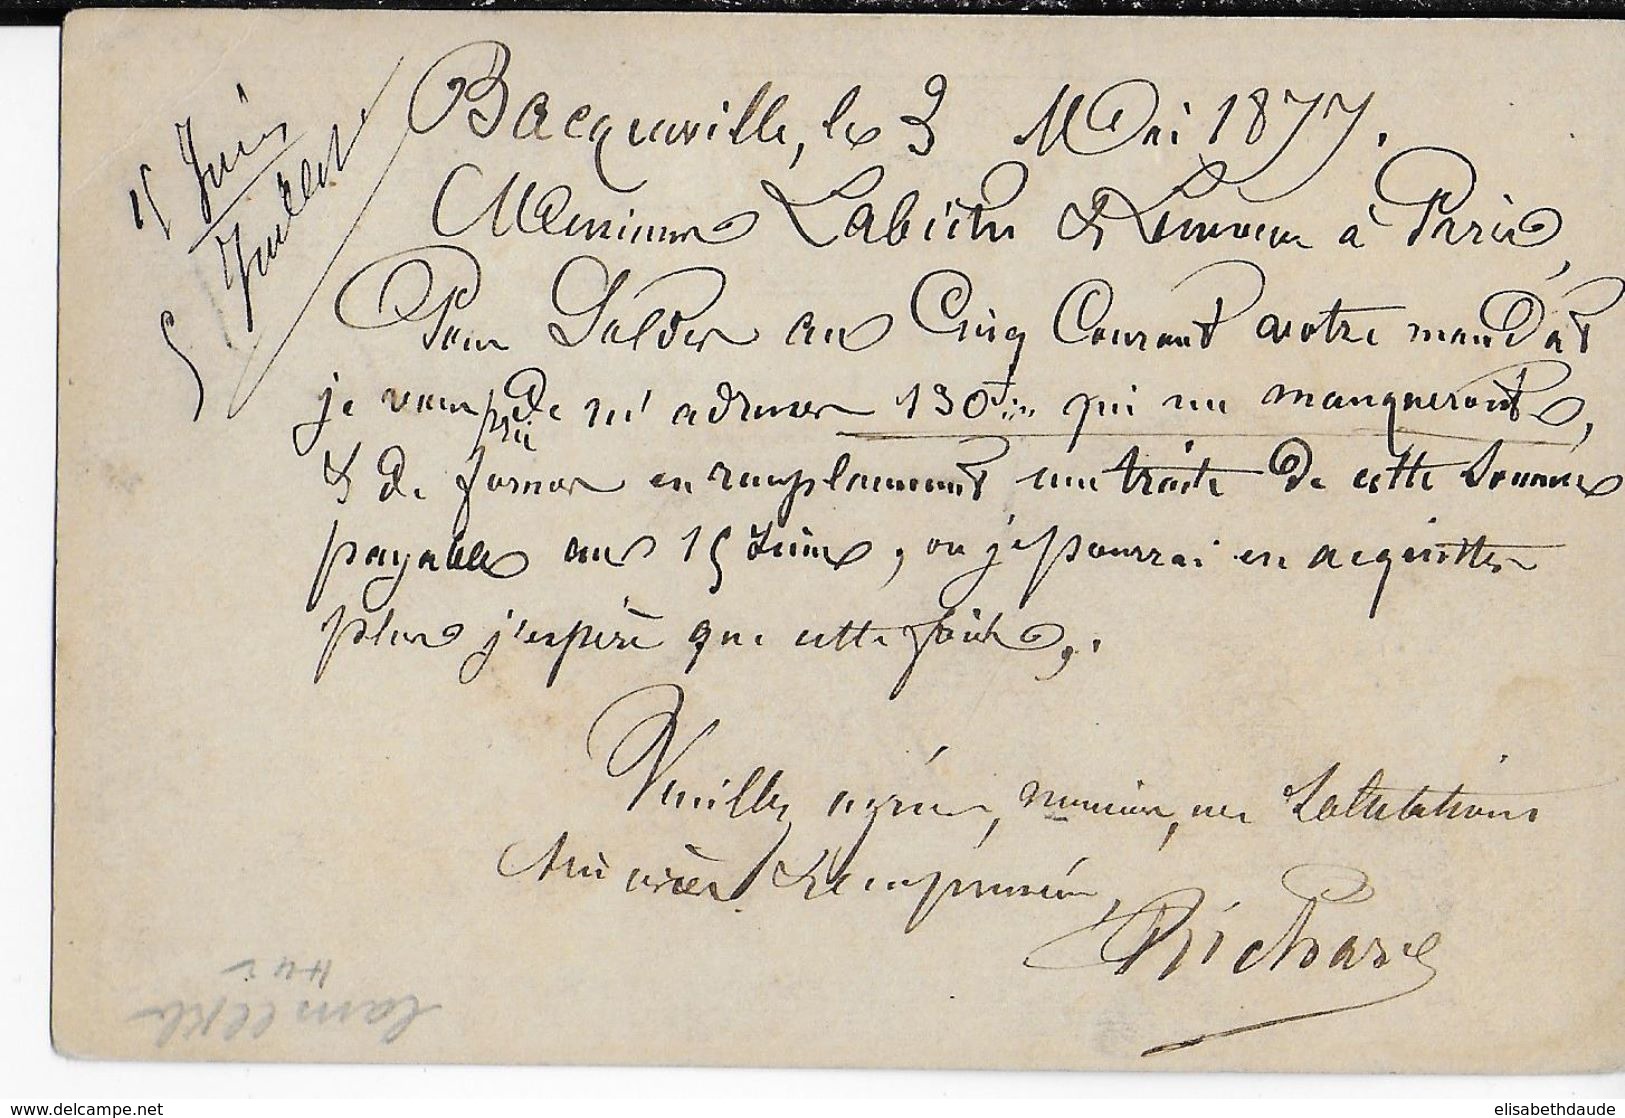 15 Juin
5 Juillet
Bacqueville, le 3 Mai 1877.
Messieurs Labiche & Lemoveux à Paris,
Pour Solder au Cinq Courant votre mandat
je vous prie de m'adresser 130f qui me manqueront,
& de fournir en remplacement une traite de cette Somme
payable au 15 Juin, ou je pourrai en acquitter
plus j'espère que cette fois,.
Veuillez agréer, messieurs, mes Salutations
Sincères & empressées,
Richard
www.delcampe.net
elisabethdaude